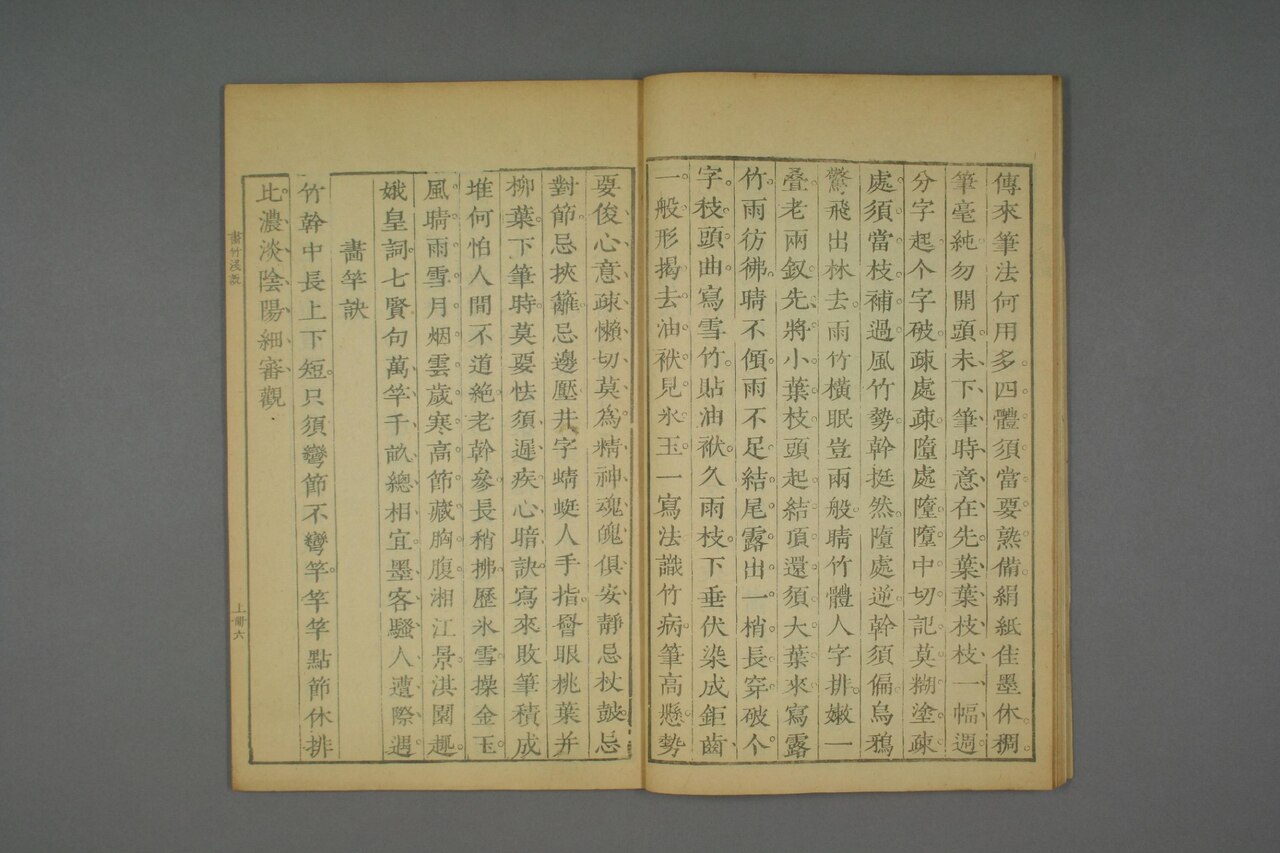 傳來筆法何用多。四體須當要熟備。絹紙佳墨休稠。
筆毫純勿開頭。未下筆時意在先。葉葉枝枝一幅週。
分字起。个字破。疎處疎。墮處墮。墮中切記莫糊塗。疎
處須當枝補過。風竹勢。幹挺然。墮處逆。幹須偏。烏鴉
驚飛出林去。雨竹橫眠豈兩般。晴竹體。人字排。嫩一
叠。老兩釵。先將小葉枝頭起。結頂還須大葉來。寫露
竹。雨彷彿。晴不傾。雨不足。結尾露出一梢長。穿破个
字枝頭曲。寫雪竹。貼油袱。久雨枝。下垂伏。染成鉅齒
一般形。揭去油袱見氷玉。一寫法。識竹病。筆高懸。勢
要俊。心意疎懶切莫為。精神魂魄俱安靜。忌杖鼓。忌
對節。忌挾籬。忌邊壓。井字蜻蜓人手指。罾眼桃葉并
柳葉。下筆時。莫要怯。須遲疾。心暗訣。寫來敗筆積成
堆。何怕人間不道絶。老幹參。長稍拂。歷氷雪。操金玉。
風晴雨雪月烟雲。歲寒高節藏胸腹。湘江景。淇園趣。
娥皇詞。七賢句。萬竿千畝總相宜。墨客騷人遭際遇。
畵竿訣
竹幹中長上下短。只須彎節不彎竿。竿竿點節休排
比。濃淡陰陽細審觀。
畵竹淺說
上冊六